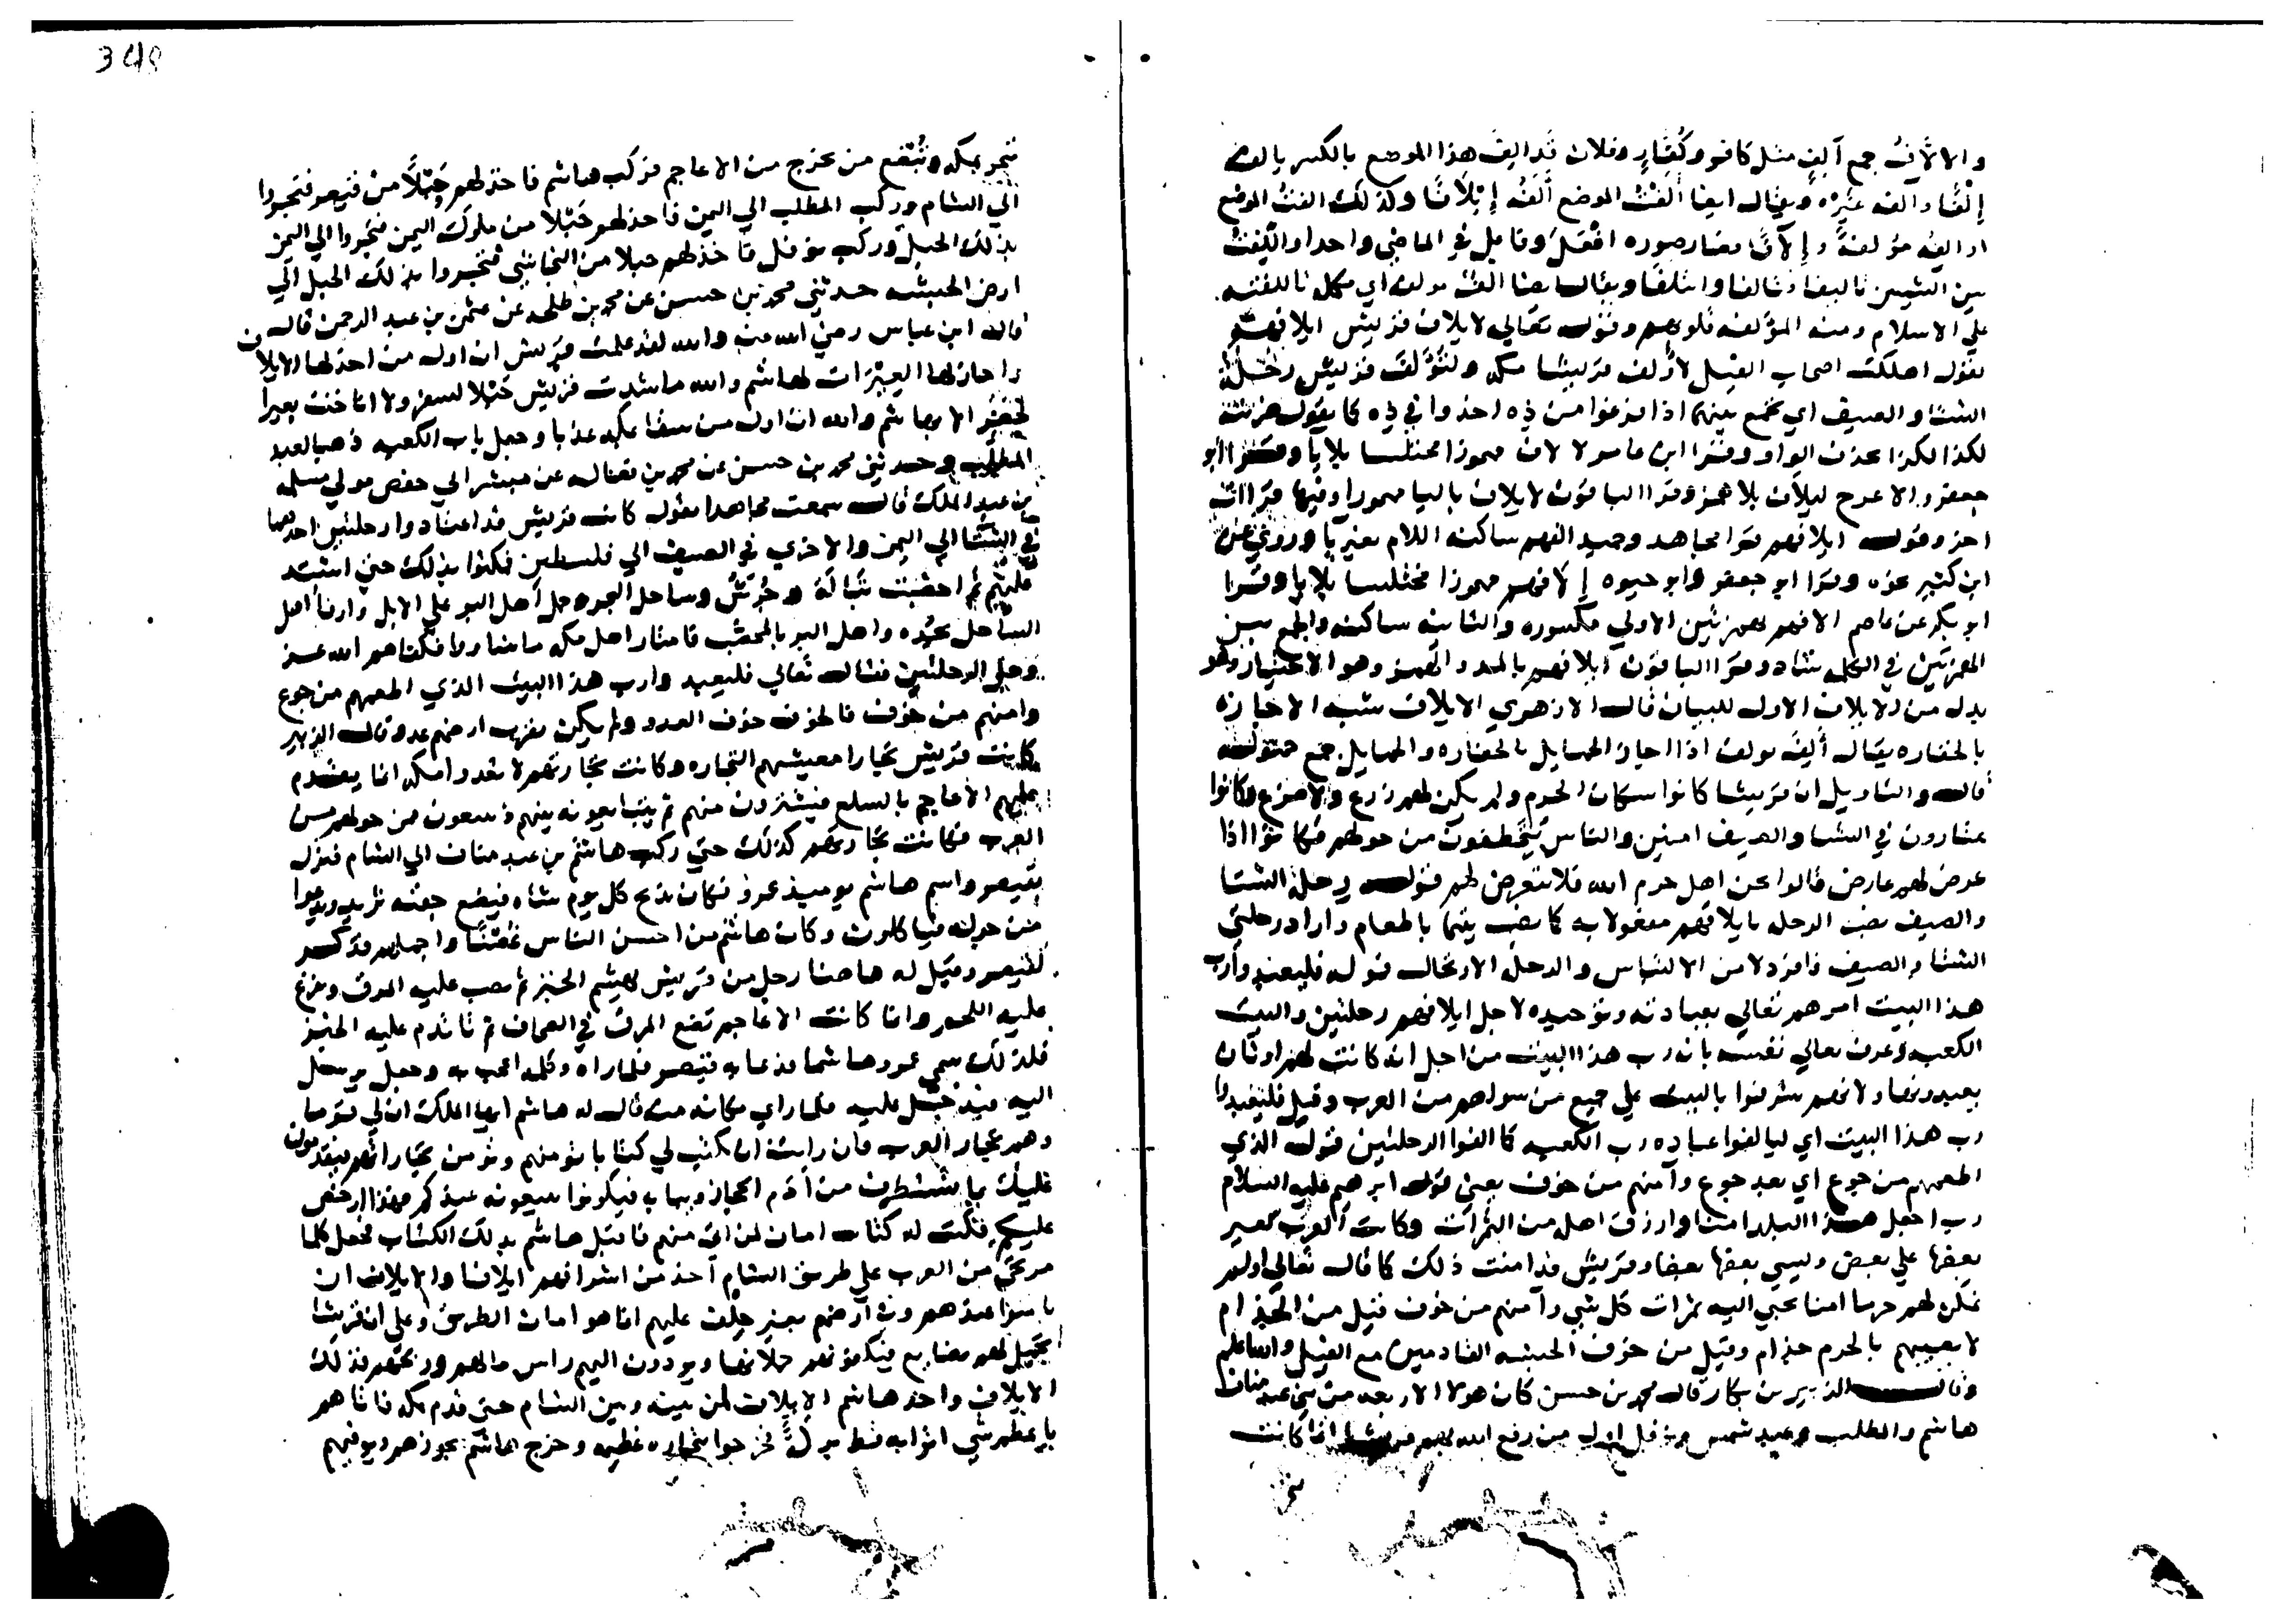 والالاف جمع آلف مثل كافر وكفار وفلان قد الف هذا الموضع بالكسر يالف
إلفا وآلفه غيره ويقال ايضا الفت الموضع أُلفه إيلافا وكذلك الفت الموضع
اوالفه مؤالفة وإلافا فصار صوره افعل وفاعل في الماضي واحدا والّفت
بين الشيين تاليفا فتالفا وائتلفا ويقال ايضا الف مولف اي مكمله
علي الاسلام ومنه المؤلفه قلوبهم وقوله تعالي لايلاف قريش ايلافهم
يقول اهلكت اصحاب الفيل لاولف قريشا مكه ولتؤلف قريش رحلة
الشتا والصيف اي تجمع بينهما اذا فرغوا من ذه اخذوا في ذه كا يقول ضربته
لكذا لكذا بحذف الواو وقرا ابن عامر لالاف مهموزا مختلسا بلا يا وقرا ابو
جعفر والاعرج ليلاف بلا همز وقرا الباقون لايلاف باليا مهموزا وفيها قراات
اخر وقوله ايلافهم قرا مجاهد وحميد الفهم ساكنه اللام بغير يا وروي عن
ابن كثير غيره وقرا ابو جعفر وابو حيوه إلافهم مهموزا مختلسا بلا يا وقرا
ابو بكر عن عاصم الافهم بهمزتين الاولي مكسوره والثانيه ساكنه والجمع بين
الهمزتين في الكلمه شاذ وقرا الباقون ايلافهم بالمد والهمز وهو الاختيار وهو
بدل من الايلاف الاول للبيان قال الازهري الايلاف شبه الاجازه
بالخفاره يقال ألف يولف اذا اجار الحمايل بالخفاره والحمايل جمع حموله
قال والتاويل ان قريشا كانوا سكان الحرم ولم يكن لهم زرع ولا ضرع وكانوا
يمتارون في الشتا والصيف امنين والناس يتخطفون من حولهم فكانوا اذا
عرض لهم عارض قالوا نحن اهل حرم الله فلا يتعرض لهم قوله رحلة الشتا
والصيف نصب الرحله بايلافهم مفعولا به كا نصب يتيما باطعام واراد رحلتي
الشتا والصيف فافرد لامن الالتباس والرحلة الارتحال قوله فليعبدوا رب
هذا البيت امرهم تعالي بعبادته وتوحيده لاجل ايلافهم رحلتين والبيت
الكعبه وعرف تعالي نفسه بانه رب هذا البيت من اجل انه كانت لهم اوثان
يعبدونها ولانهم شرفوا بالبيت علي جميع من سواهم من العرب وقيل فليعبدوا
رب هذا البيت اي ليالفوا عباده رب الكعبه كا الفوا الرحلتين قوله الذي
اطعمهم من جوع اي بعد جوع وآمنهم من خوف يعني قول ابرهيم عليه السلام
رب اجعل هذا البلد امنا وارزق اهله من الثمرات وكانت العرب يغير
بعضها علي بعض ويسبي بعضها بعضا وقريش قد امنت ذلك كا قال تعالي اولم
نمكن لهم حرما امنا يجبي اليه ثمرات كل شي وآمنهم من خوف قيل من الجذام
لا يصيبهم بالحرم جذام وقيل من خوف الحبشه القادمين مع الفيل والله اعلم
وقال الزبير بن بكار قال محمد بن حسن كان هولا الاربعه من بني عبد مناف
هاشم والمطلب وعبد شمس ونوفل اول من رفع الله بهم قريشا انما كانت
تتجر بمكه وتبضع من يخرج من الاعاجم فركب هاشم فاخذ لهم حبلا من قيصر فتجروا
الي الشام وركب المطلب الي اليمن فاخذ لهم حبلا من ملوك اليمن فتجروا الي اليمن
بذلك الحبل وركب نوفل فاخذ لهم حبلا من النجاشي فتجروا بذلك الحبل الي
ارض الحبشه حدثني محمد بن حسن عن محمد بن طلحه عن عثمن بن عبد الرحمن قال
قال ابن عباس رضي الله عنه والله لقد علمت قريش ان اول من اخذ لها الايلاف
واجاز لها العيرات لهاشم والله ما شدت قريش حبلا لسفر ولا اناخت بعيرا
لحضر الا بهاشم والله ان اول من سقا بمكه عذبا وجعل باب الكعبه ذهبا لعبد
المطلب وحدثني محمد بن حسن عن محمد بن فضاله عن مبشر الي حفص مولي مسلمه
بن عبد الملك قال سمعت مجاهدا يقول كانت قريش قد اعتادوا رحلتين احدهما
في الشتا الي اليمن والاخري في الصيف الي فلسطين فمكثوا بذلك حتي اشتد
عليهم ثم اخصبت تبالة وجرش وساحل البحر وحمل اهل البر علي الابل وارفا اهل
الساحل بجده واهل البر بالمحصب فامتار اهل مكه ما شاوا وكفاهم الله عز
وجل الرحلتين فقال تعالي فليعبدوا رب هذا البيت الذي اطعمهم من جوع
وامنهم من خوف فالخوف خوف العدو ولم يكن يقرب ارضهم عدو وقال الزبير
كانت قريش تجارا معيشهم التجاره وكانت تجارتهم لا تعدوا مكه انما يقدم
عليهم الاعاجم بالسلع فيشترون منهم ثم يتبايعونه بينهم ويبيعون من حولهم من
العرب فكانت تجارتهم كذلك حتي ركب هاشم بن عبد مناف الي الشام فنزل
بقيصر واسم هاشم يوميذ عمرو فكان يذبح كل يوم شاه فيضع جفنه ثريد ويدعوا
من حوله فياكلون وكان هاشم من احسن الناس عصبا واجمله فذكر
لقيصر وقيل له هاهنا رجل من قريش يهشم الخبز ثم يصب عليه المرق ويفرغ
عليه اللحم وانما كانت الاعاجم تضع المرق في الصحاف ثم تاتدم عليه الخبز
فلذلك سمي عمرو هاشما فدعا به قيصر فلما راه وكلمه اعجب به وجعل يرسل
اليه فيدخل عليه فلما راي مكانه منه قال له هاشم ايها الملك ان لي قوما
وهم تجار العرب فان رايت ان تكتب لي كتابا تومنهم وتومن تجاراتهم فيقدمون
عليك بما يستطرف من أدم الحجاز وثيابه فيكونوا يبيعونه عندكم فهذا ارخص
عليكم فكتب له كتاب امان لمن اتي منهم فاقبل هاشم بذلك الكتاب فجعل كلما
مر بحي من العرب علي طريق الشام اخذ من اشرافهم ايلافا والايلاف ان
يامنوا عندهم وفي ارضهم بغير حلف عليهم انما هو امان الطريق وعلي ان قريشا
تحمل لهم بضايع فيكفونهم حملانها ويودون اليهم راس مالهم وربحهم فذلك
الايلاف واخذ هاشم الايلاف لمن بينه وبين الشام حتي قدم مكه فاتاهم
باعظم شي اتوا به قط بركة فخرجوا بتجاره عظيمه وخرج هاشم يجوزهم ويوفيهم